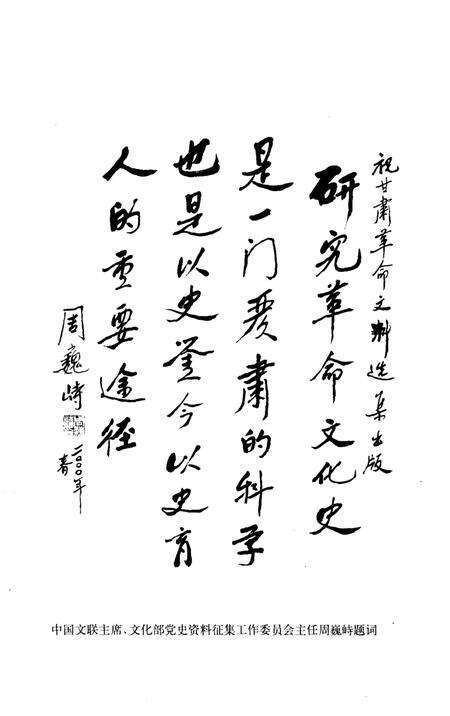 祝甘肃革命文料选集出版
研究革命文化史
是一门严肃的科学
也是以史鉴今以史育
人的重要途径
周巍峙
二〇〇〇年
春
中国文联主席、文化部党史资料征集工作委员会主任周巍峙题词